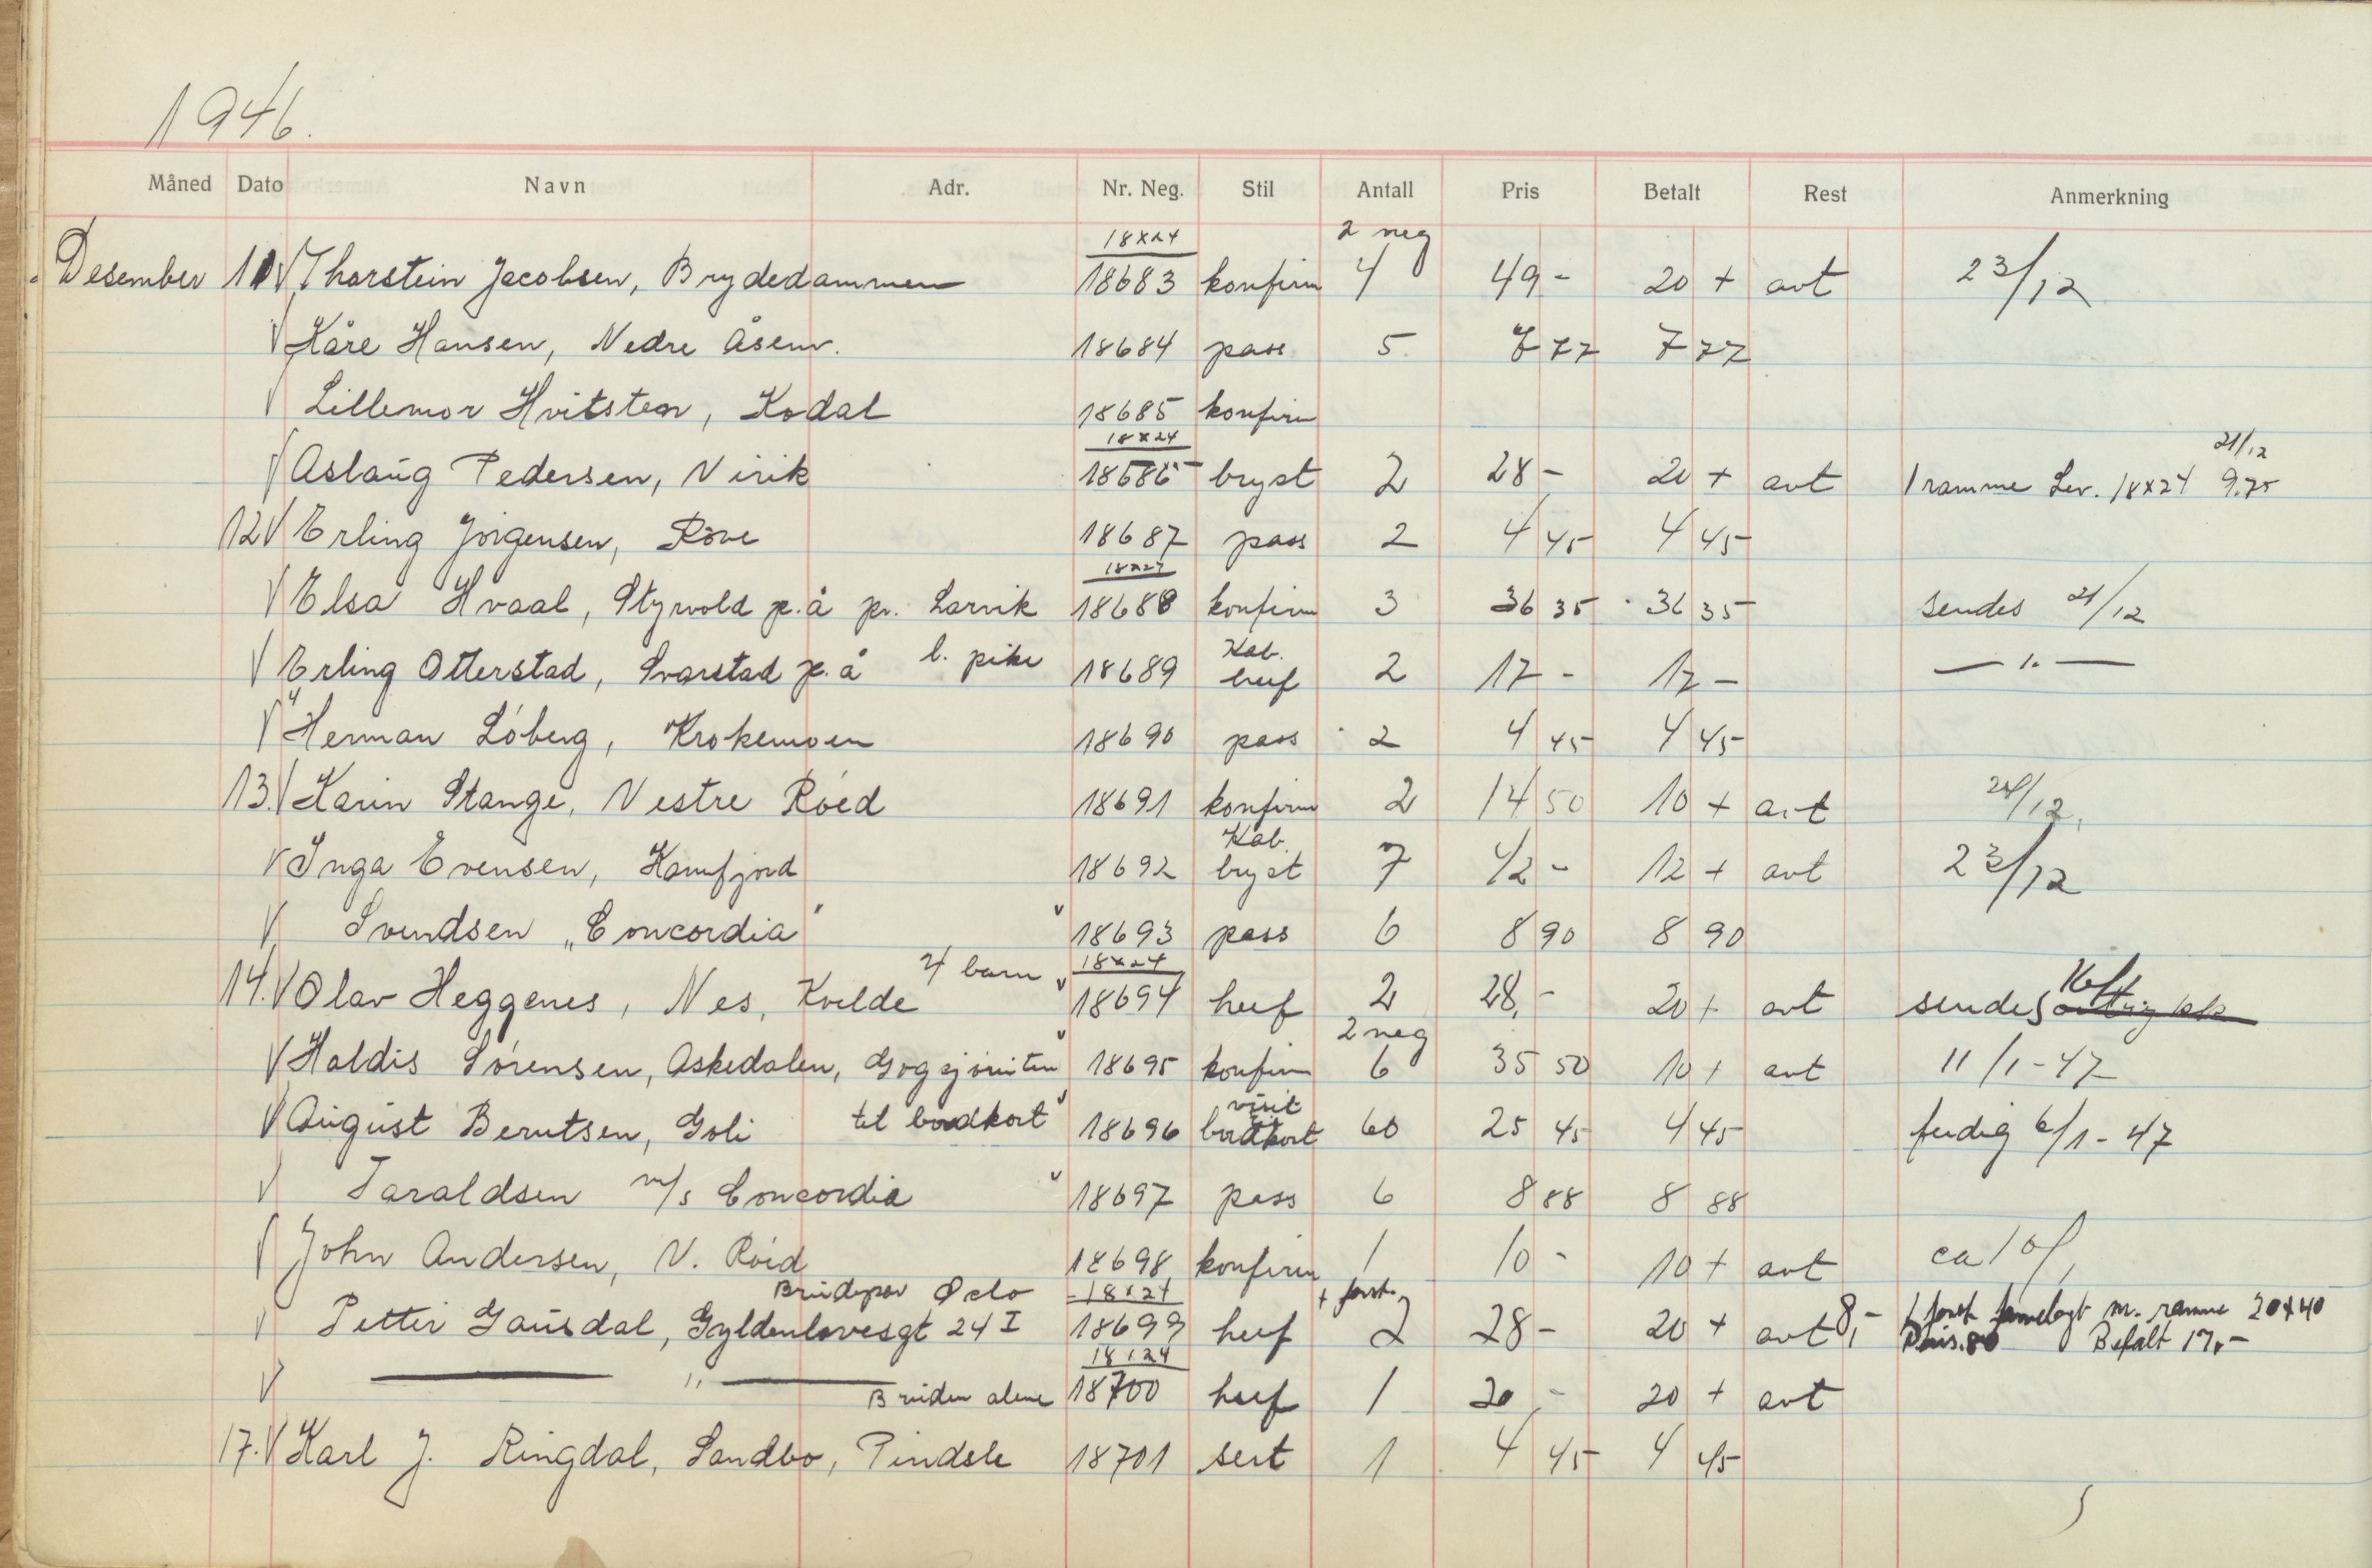 1946.
Måned Dato Navn Adr. Nr. Neg. Stil Antall Pris Betalt Rest Anmerkning
18x24 2 neg
Desember 11 V Thorstein Jacobsen, Brydedammen 18683 konfirm 4 49 - 20 + avt 23/12
V Kåre Hansen, Nedre Åsenv. 18684 pass 5 7 77 7 77
V Lillemor Hvitsten, Kodal 18685 konfirm
18x24 21/12
V Aslaug Pedersen, Virik 18686 bryst 2 28 - 20 + avt 1 ramme Lev. 18x24 9.75
12 V Erling Jörgensen, Röve 18687 pass 2 4 45 4 45
18x24
V Elsa Hvaal, Styrvold p.å pr. Larvik 18688 konfirm 3 36 35 36 35 sendes 21/12
l. pike Kab.
V Erling Otterstad, Svarstad p.å 18689 heef 2 17 - 17 - — " —
V Herman Löberg, Krokemoen 18690 pass 2 4 45 4 45
13. V Karin Stange, Vestre Röed 18691 konfirm 2 14 50 10 + avt 24/12
Kab.
V Inga Evensen, Kamfjord 18692 bryst 7 42 - 12 + avt 23/12
V Svendsen „Concordia" 18693 pass 6 8 90 8 90
4 barn 18x24
14. V Olav Heggenes, Nes, Kvelde 18694 heef 2 28,- 20 + avt sendes
2 neg
V Haldis Sörensen, Askedalen, Gogsjöruten 18695 konfirm 6 35 50 10 + avt 11/1-47
visit
V August Berntsen, Goli til bordkort 18696 bordkort 60 25 45 4 45 ferdig 6/1-47
V Taraldsen m/s Concordia 18697 pass 6 8 88 8 88
V John Andersen, V. Röed 18698 konfirm 1 10 - 10 + avt ca 10/1
Brudepar Oslo 18x24 + forst.
V Petter Gausdal, Gyldenlovesgt 24 I 18699 heef 2 28 - 20 + avt 8,- 1 forst. m. ramme 20x40
Betalt 17.-
18x24
V — " — Bruden alene 18700 heef 1 20 - 20 + avt
17. V Karl J. Ringdal, Sandbo, Pindsle 18701 sert 1 4 45 4 45